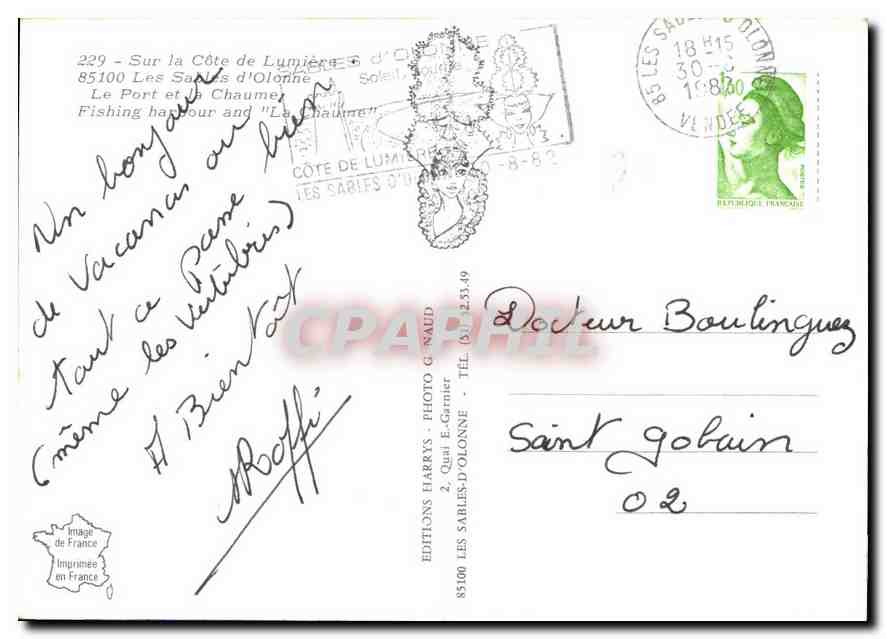 229 - Sur la Côte de Lumière
85100 Les Sables d'Olonne
Le Port et la Chaume
Fishing harbour and "La Chaume"
SABLES d'OLONNE
Soleil
CÔTE DE LUMIÈRE
LES SABLES D'OL
-8-82
85 LES SABLES D'OLONNE
18 H 15
30-
198
VENDEE
RÉPUBLIQUE FRANÇAISE
POSTES
Un bonjour
de vacances ou
tout ce passe bien
(même les vertèbres)
A Bientôt
Roffi
CPAPHIL
Docteur Boulinguez
Saint gobain
02
EDITIONS HARRYS - PHOTO G NAUD
2, Quai E.-Garnier
85100 LES SABLES-D'OLONNE - TÉL. (51) 32.53.49
Image
de France
Imprimée
en France